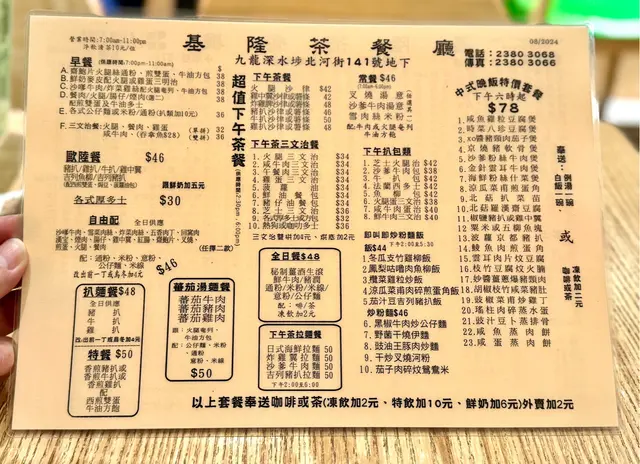 營業時間:7:00am-11:00pm
淨飲清茶10元/位
基隆茶餐廳
九龍深水埗北河街141號地下
08/2024
電話:2380 3068
傳真:2380 3066
早餐
(供應時間7:00am-11:00am)
A. 鹵鮑片火腿絲通粉，煎雙蛋，牛油方包 38
B. 鮮奶麥皮配火腿或雞蛋三明治 38
C. 沙嗲牛肉/炸菜雞絲配公仔麵或米粉
D. 餐肉/火腿/腸仔/煙肉(選二)
配煎雙蛋及牛油多士 38
E. 各式公仔麵或米粉/通粉(扒類加10元) 38
F. 三文治餐:火腿、餐肉、雞蛋
咸牛肉、(吞拿魚$28) (單拼) 32
(雙拼) 36
歐陸餐 $46
豬扒/雞扒/牛扒/雞中翼
吉列魚柳/吉列豬扒
跟鮮奶加五元
各式厚多士 $30
自由配
全日供應
(任擇二款)
配:公仔麵、米粉、通粉
意粉、米線
$46
扒麵餐 $48
全日供應
豬扒
牛扒
雞扒
特餐 $50
香煎豬扒或
香煎雞扒或
香煎牛扒
配
西煎雙蛋
牛油方飽
蕃茄湯麵餐
蕃茄牛肉
蕃茄豬肉
蕃茄雞肉
跟:火腿奄列、
牛油方包
配:公仔麵、米粉
、通粉
意粉、米線
$50
超值下午茶餐
(供應時間2:30pm-6:00pm)
下午茶餐 $
火腿沙律 42
雞中翼沙律
沙律
豬扒沙律
雞扒沙律
牛扒沙律
下午茶三文治餐
1. 火腿三文治 $34
2. 咸牛三文治 $34
3. 午餐肉三文治 $34
4. 雞蛋三文治 $34
5. 菠蘿油 $34
6. 鮮油餐包 $34
7. 豬仔油餐 $34
8. 西多士 $34
9. 腸仔三文治 $34
10. 熱狗或咖喱多士 $34
三文治雙拼加4元、烘底加2元
全日餐$48
秘制薑酒生滾
鮮牛肉/豬潤
通粉/米粉/米線/
意粉/公仔麵
配:啡/茶
凍飲加2元
下午茶拉麵餐
日式海鮮拉麵 50
炸雞翼拉麵 50
沙爹牛肉麵 50
吉列豬扒拉麵 50
下午2:00至6:00
常餐 $46
(7:00am-6:00pm)
叉燒湯意
沙爹牛肉湯意
雪肉絲米粉
配牛肉或火腿奄列
、牛油方包
下午扒包類
1. 芝士火腿 $42
2. 芝士牛肉 $42
3. 牛扒包 $42
4. 法蘭西多士 $42
5. 魚柳包 $42
6. 火腿蛋三文治 $42
7. 咸牛肉蛋三文治 $42
8. 鮮牛肉三文治 $40
即叫即炒粉麵飯
飯$44
1. 冬瓜支竹雞柳飯
2. 鳳梨咕嚕肉魚柳飯
3. 欖菜雞粒炒飯
4. 涼瓜菜甫肉碎煎蛋角飯
5. 茄汁豆吉列豬扒飯
炒粉麵$46
6. 黑椒牛肉炒公仔麵
7. 野菌干燒伊麵
8. 豉油王豚肉炒麵
9. 干炒叉燒河粉
10. 茄子肉碎炆鴛鴦米
中式晚飯特價套餐
下午六時起
$78
1. 咸魚雞粒豆腐煲
2. 時菜八珍豆腐煲
3. xo醬豬頸肉茄子煲
4. 京燒豬軟骨煲
5. 沙爹粉絲牛肉煲
6. 金針雲耳牛肉煲
7. 海鮮粉絲什菜煲
8. 涼瓜菜甫煎蛋角
9. 北菇扒菜苗
10. 北菇羅漢齋豆腐
11. 椒鹽豬扒或雞中翼
12. 粟米或五柳魚塊
13. 菠蘿京都豬扒
14. 鯪魚肉煎蛋角
15. 雲耳肉片炆豆角
16. 枝竹豆腐炆火腩
17. 炒醬薑蔥爆豬頸肉
18. 胡椒枝竹咸菜豬肚
19. 豉椒菜甫炒雞丁
20. 瑤柱肉碎蒸水蛋
21. 豉汁豆卜蒸排骨
22. 咸魚蒸肉餅
23. 咸蛋蒸肉餅
奉送:例湯一碗、白飯一碗、或咖啡或茶 凍飲加二元
以上套餐奉送咖啡或茶(凍飲加2元、特飲加10元、鮮奶加6元)外賣加2元